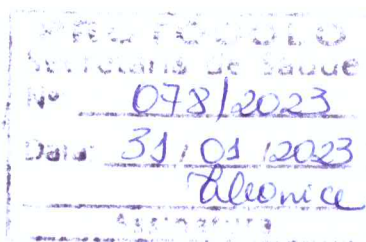 PROTOCOLO
Secretaria de Saúde
Nº 078/2023
Data: 31/01/2023
Cleonice
Assinatura